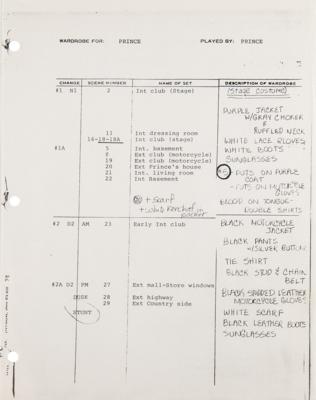 WARDROBE FOR: PRINCE PLAYED BY: PRINCE
CHANGE SCENE NUMBER NAME OF SET DESCRIPTION OF WARDROBE
#1 N1 2 Int club (Stage) (STAGE COSTUME)
PURPLE JACKET
W/GRAY CHOKER
&
RUFFLED NECK
11 Int dressing room
16-18-18A Int club (stage) WHITE LACE GLOVES
#1A 5 Int. basement WHITE BOOTS
8 Ext club (motorcycle) SUNGLASSES
19 Ext club (motorcycle)
20 Ext Prince's house PUTS ON PURPLE
21 Int. living room COAT
22 Int Basement - PUTS ON MOTORCYCLE
GLOVES
+ Scarf
+ in pocket
BLOOD ON TONGUE-
DOUBLE SHIRTS
#2 D2 AM 23 Early Int club BLACK MOTORCYCLE
JACKET
BLACK PANTS
W/SILVER BUTTONS
TIE SHIRT
BLACK STUD & CHAIN
BELT
#2A D2 PM 27 Ext mall-Store windows
BLACK STUDDED LEATHER
DUSK 28 Ext highway MOTORCYCLE GLOVES
29 Ext Country side
STUNT WHITE SCARF
BLACK LEATHER BOOTS
SUNGLASSES